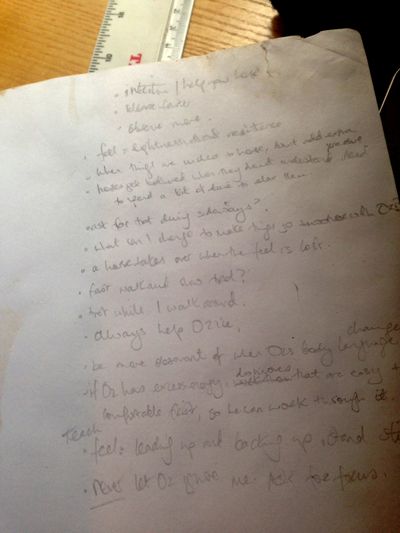 · intention / help your horse
· release faster
· observe more.
· feel = lightness, not resistance
· when things are unclear to horse, don't add extra pressure
· horses get bothered when they don't understand. Need
to spend a bit of time to slow them
· ask for trot during sideways?
· what can I change to make things go smoother with Oz?
· a horse takes over when the feel is lost.
· fast walk and slow trot?
· trot while I walk around.
· always help Ozzie,
· be more observant of when Ozs body language changes
· if Oz has excess energy, do exercises that are easy +
comfortable first, so he can work through it.
Teach
· feel: leading up and backing up, stand
· Never let Oz ignore me. Ask for focus.